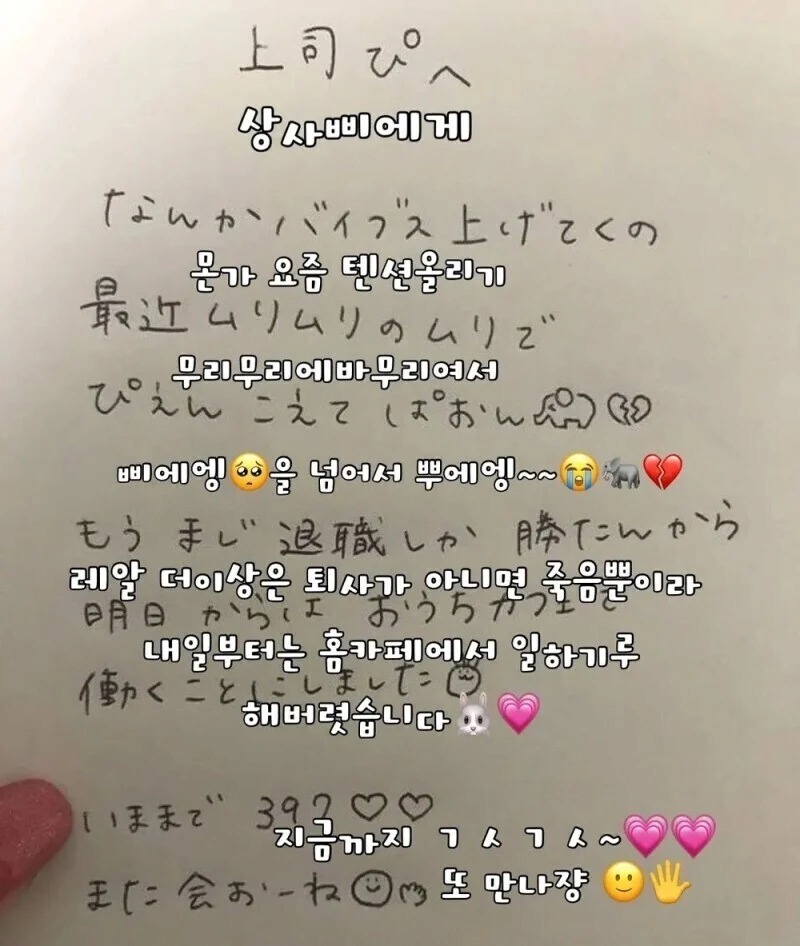 上司ぴへ
상사삐에게
なんかバイブス上げてくの
몬가 요즘 텐션올리기
最近ムリムリのムリで
무리무리에바무리여서
ぴえんこえてぱおん
삐에엥🥺을 넘어서 뿌에엥~~😭🐘💔
もうまじ退職しか勝たんから
레알 더이상은 퇴사가 아니면 죽음뿐이라
明日からは おうちカフェで
내일부터는 홈카페에서 일하기루
働くことにしました
해버렷습니다🐰💗
いままで 39?♡♡
지금까지 ㄱㅅㄱㅅ~💗💗
また会おーね
또 만나쟝 🙂🖐